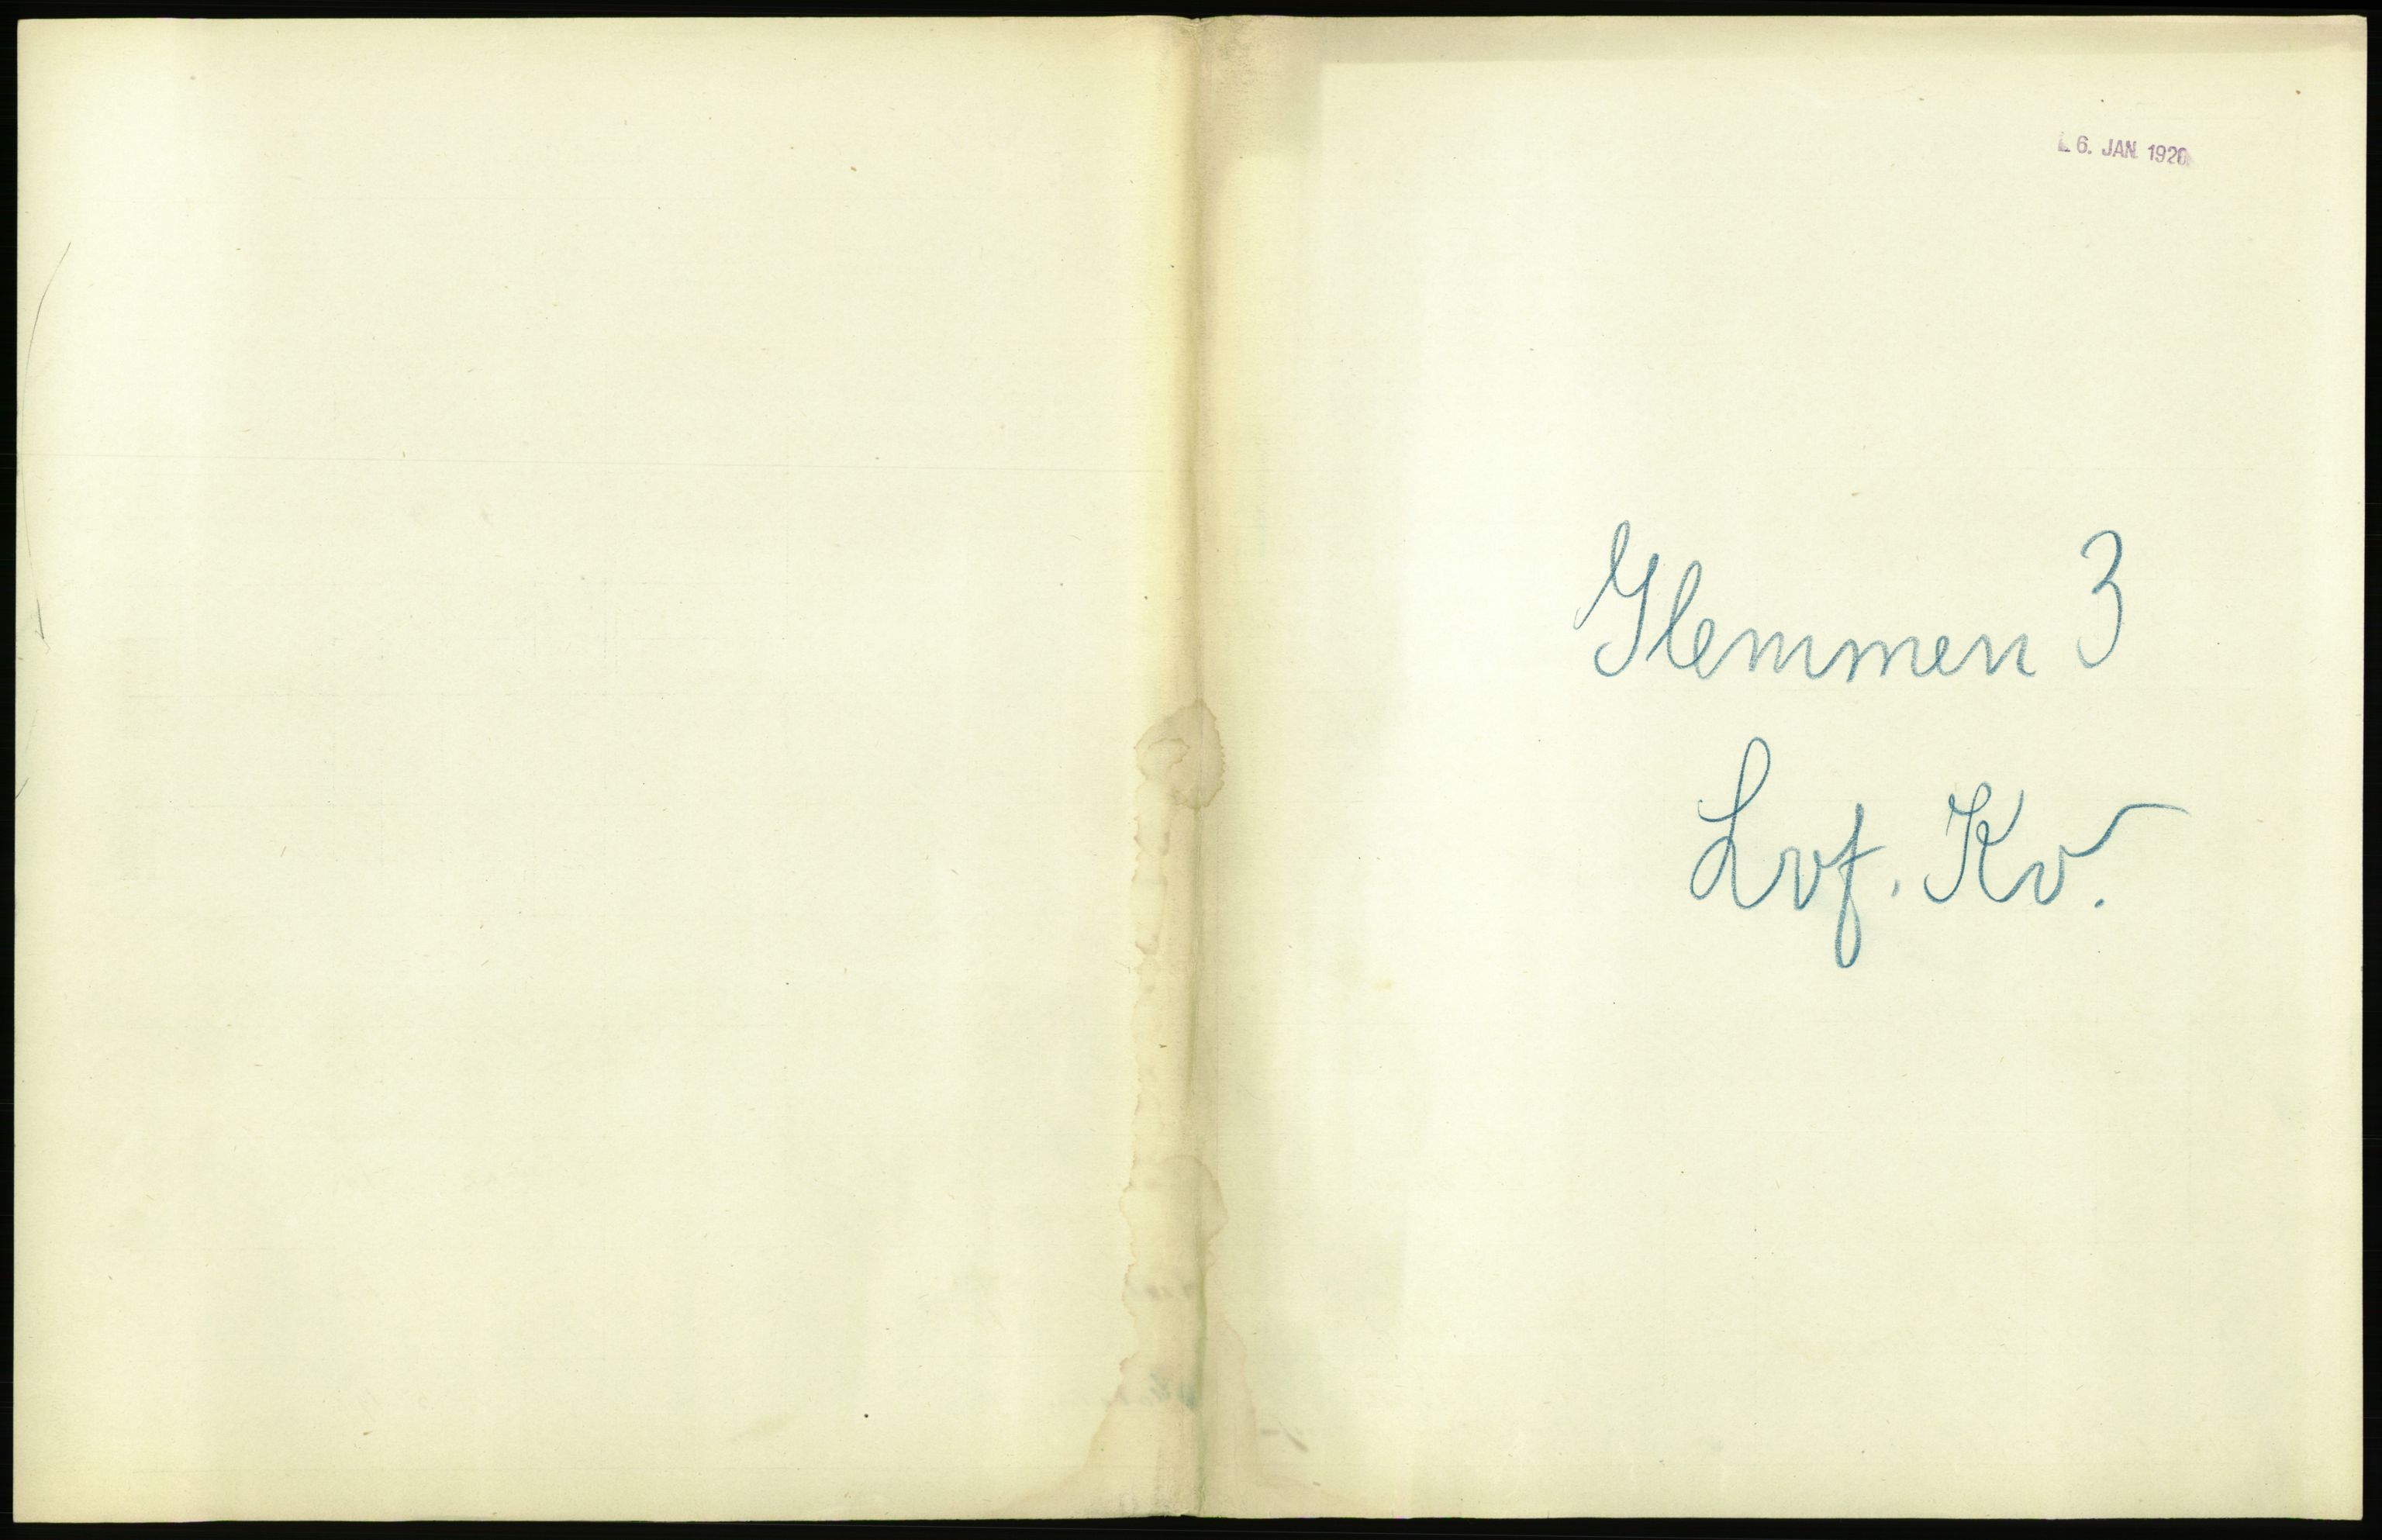 6. JAN. 1920
Glemmen 3
Lvf. Kv.